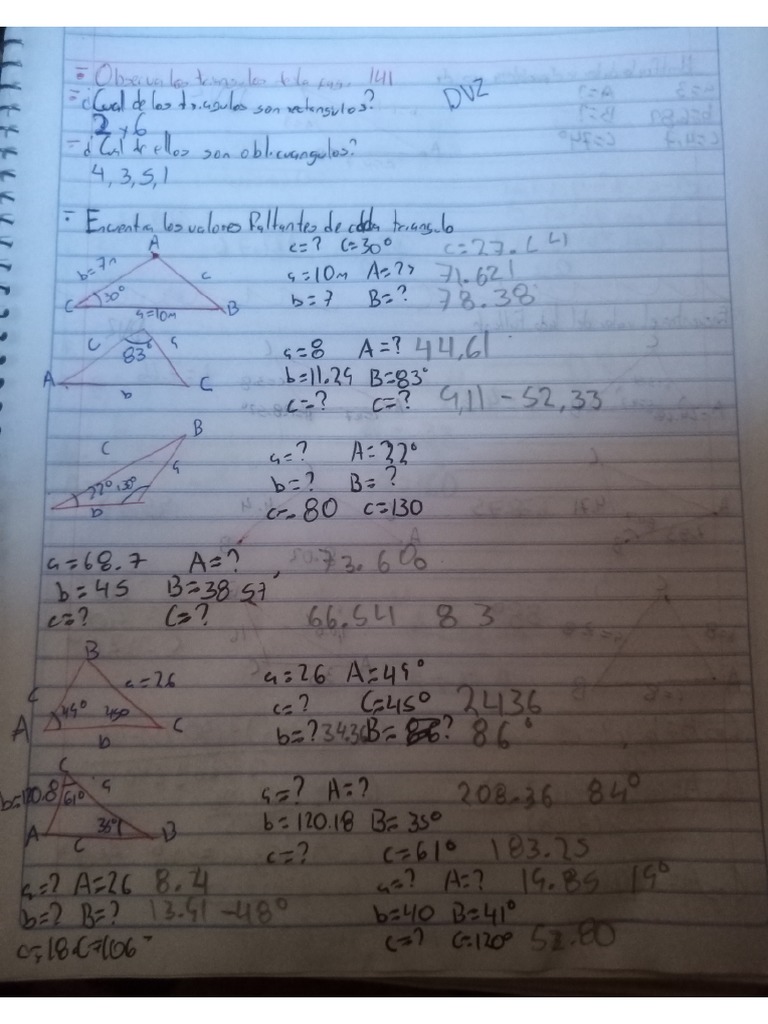 = Observa los triangulos de la pag. 141
= ¿Cual de los triangulos son rectangulos? DVZ
2 y 6
= ¿Cual de ellos son oblicuangulos?
4, 3, 5, 1
= Encuentra los valores faltantes de cada triangulo
A c=? C=30°
b=7m c a=10m A=?
C 30° B b=7 B=? 71.621
a=10m 78.38
c 83° a a=8 A=? 44,61
A b C b=11.29 B=83°
c=? c=? 9,11 - 52,33
B
c a a=? A=22°
22° 130° b=? B=?
b c=80 c=130
a=68.7 A=? 73.6
b=45 B=38 57'
c=? C=? 66.54 83
B
c a=26 a=26 A=49°
49° 450 c=? C=45° 2436
A b C b=? 34.36 B= ? 86°
C
b=120.8 61° a a=? A=? 208.36 84°
A 35° B b=120.18 B=35°
c c=? c=61° 183.25
a=? A=26 8.4 a=? A=? 19.85 19°
b=? B=? 13.91 -48° b=40 B=41°
c=18 C=106 c=? C=120° 52.80